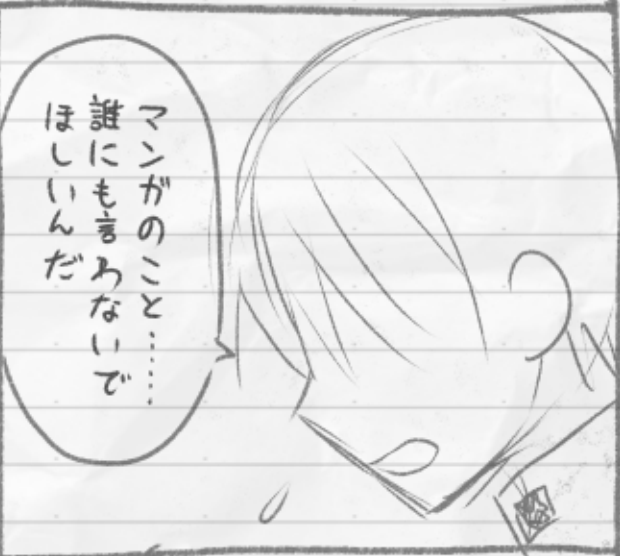 マンガのこと……
誰にも言わないで
ほしいんだ